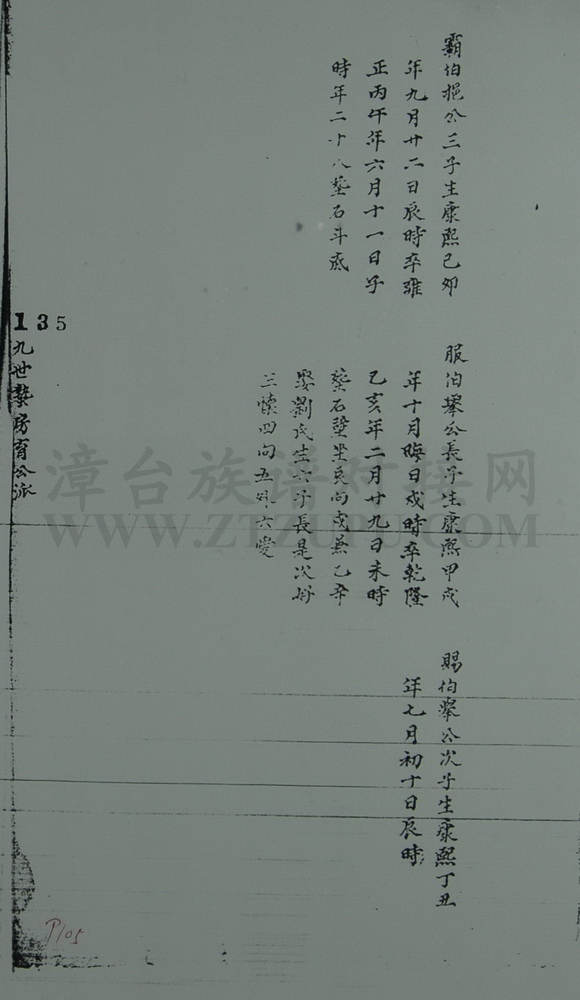 霸伯挹公三子生康熙己卯
年九月廿二日辰時卒雍
正丙午年六月十一日子
時年二十八塟石斗底
服伯攀公長子生康熙甲戌
年十月晦日戌時卒乾隆
乙亥年二月廿九日未時
塟石壁坐艮向戌兼乙辛
娶劉氏生六子長是次好
三懷四向五外六愛
賜伯攀公次子生康熙丁丑
年七月初十日辰時
135
九世婺房育公派
P105
漳台族谱对接网
WWW.ZTZUPU.COM